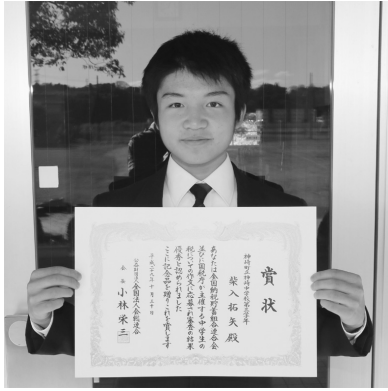 賞状
神崎町立神崎中学校第三学年
柴入拓矢殿
あなたは全国納税貯蓄組合連合会
並びに国税庁が主催する中学生の
税についての作文に応募され審査の結果
優秀と認められました
ここに記念品を贈りこれを賞します
平成二十八年十月
公益財団法人全国法人会総連合
会長 小林栄三